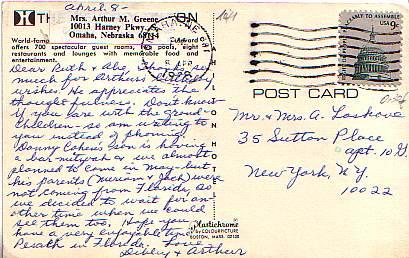 April 8-
THE
ON
Mrs. Arthur M. Greene
10013 Harney Pkwy
Omaha, Nebraska 68114
World-famous
offers 700 spectacular guest rooms, two pools, eight
restaurants and lounges with memorable food and
entertainment.
Dear Ruth & Abe, Thanks so
much for Arthur's
wishes. He appreciates the
thoughtfulness. Don't know
if you are with the grand-
children - so am writing to
you instead of phoning.
Danny Cohen's son is having
a bar mitzvah & we almost
planned to come in May - but
his parents (Miriam & Jack) were
not coming from Florida, so
we decided to wait for an-
other time when we could
see them too. Hope you
have a very enjoyable time
Pesach in Florida. Love
Libby & Arthur
OMAHA
USA 9c
TO ASSEMBLE
POST CARD
Mr. & Mrs. A. Laskove
35 Sutton Place
apt. 10 G
New York, N.Y.
10022
Mastichrome
by COLOURPICTURE
BOSTON, MASS. 02130